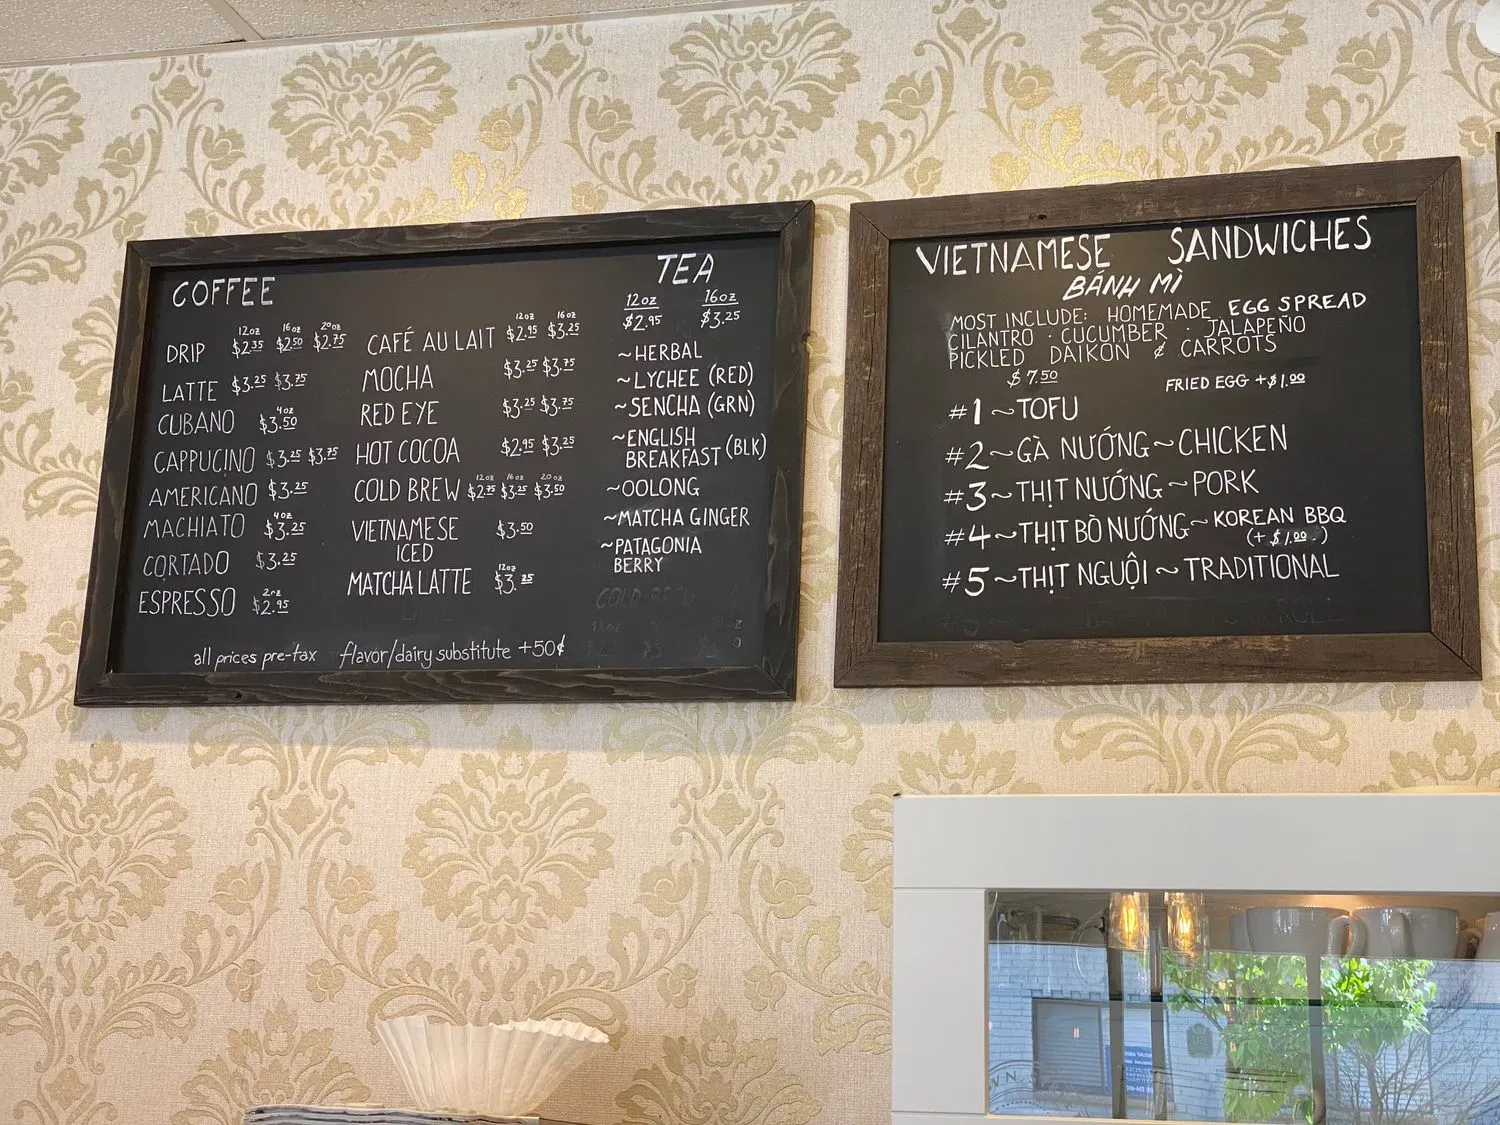 COFFEE
12oz 16oz 20oz
DRIP $2.35 $2.50 $2.75
LATTE $3.25 $3.75
4oz
CUBANO $3.50
CAPPUCINO $3.25 $3.75
AMERICANO $3.25
4oz
MACHIATO $3.25
CORTADO $3.25
2oz
ESPRESSO $2.95
12oz 16oz
CAFÉ AU LAIT $2.95 $3.25
MOCHA $3.25 $3.75
RED EYE $3.25 $3.75
HOT COCOA $2.95 $3.25
12oz 16oz 20oz
COLD BREW $2.75 $3.25 $3.50
VIETNAMESE $3.50
ICED
12oz
MATCHA LATTE $3.25
all prices pre-tax flavor/dairy substitute +50¢
TEA
12oz 16oz
$2.95 $3.25
~HERBAL
~LYCHEE (RED)
~SENCHA (GRN)
~ENGLISH
BREAKFAST (BLK)
~OOLONG
~MATCHA GINGER
~PATAGONIA
BERRY
VIETNAMESE SANDWICHES
BÁNH MÌ
MOST INCLUDE: HOMEMADE EGG SPREAD
CILANTRO · CUCUMBER · JALAPEÑO
PICKLED DAIKON & CARROTS
$7.50 FRIED EGG +$1.00
#1~TOFU
#2~GÀ NƯỚNG~CHICKEN
#3~THỊT NƯỚNG~PORK
#4~THỊT BÒ NƯỚNG~KOREAN BBQ
(+$1.00.)
#5~THỊT NGUỘI~TRADITIONAL